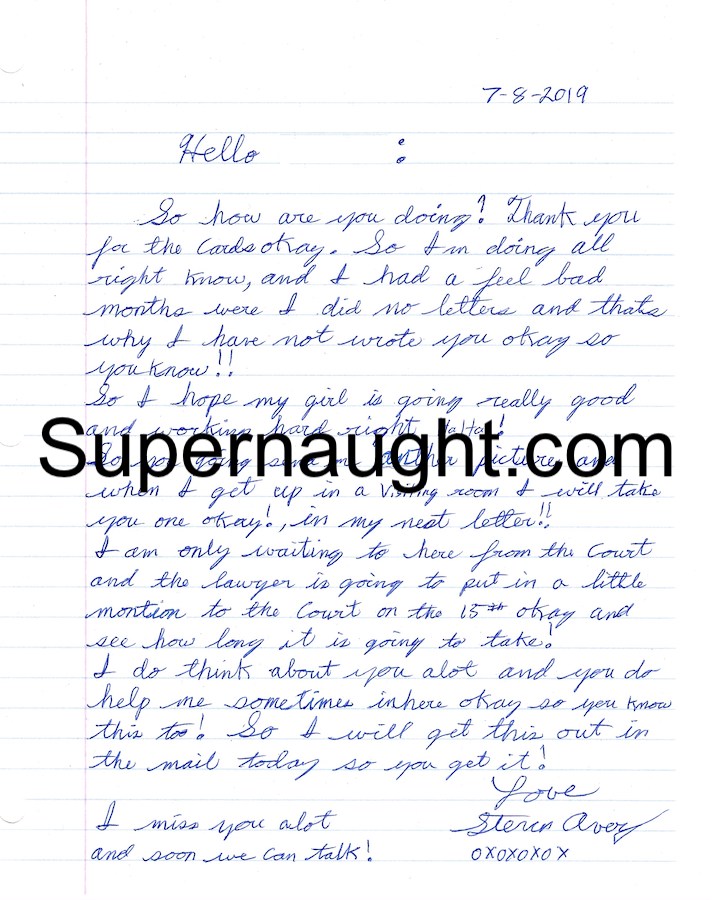 7-8-2019
Hello :
So how are you doing? Thank you
for the Cards okay. So I'm doing all
right know, and I had a feel bad
months were I did no letters and thats
why I have not wrote you okay so
you know!!
So I hope my girl is going really good
and working hard right, HaHa!
Supernaught.com
So going send another picture and
when I get up in a Visiting room I will take
you one okay!, in my nest letter!!
I am only waiting to here from the Court
and the lawyer is going to put in a little
montion to the Court on the 15th okay and
see how long it is going to take!
I do think about you alot and you do
help me sometimes inhere okay so you know
this too! So I will get this out in
the mail today so you get it!
Love
I miss you alot Steven Avery
and soon we can talk! OXOXOXOX